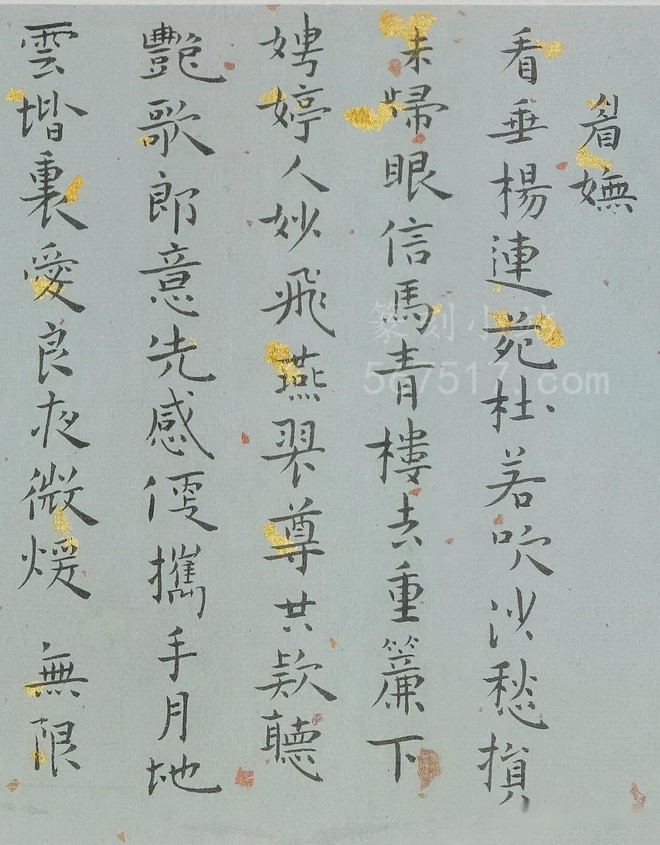 眉嫵
看垂楊連苑杜若吹沙愁損
未歸眼信馬青樓去重簾下
娉婷人妙飛燕翠尊共款聽
艷歌郎意先感便攜手月地
雲堦裏愛良夜微煖 無限